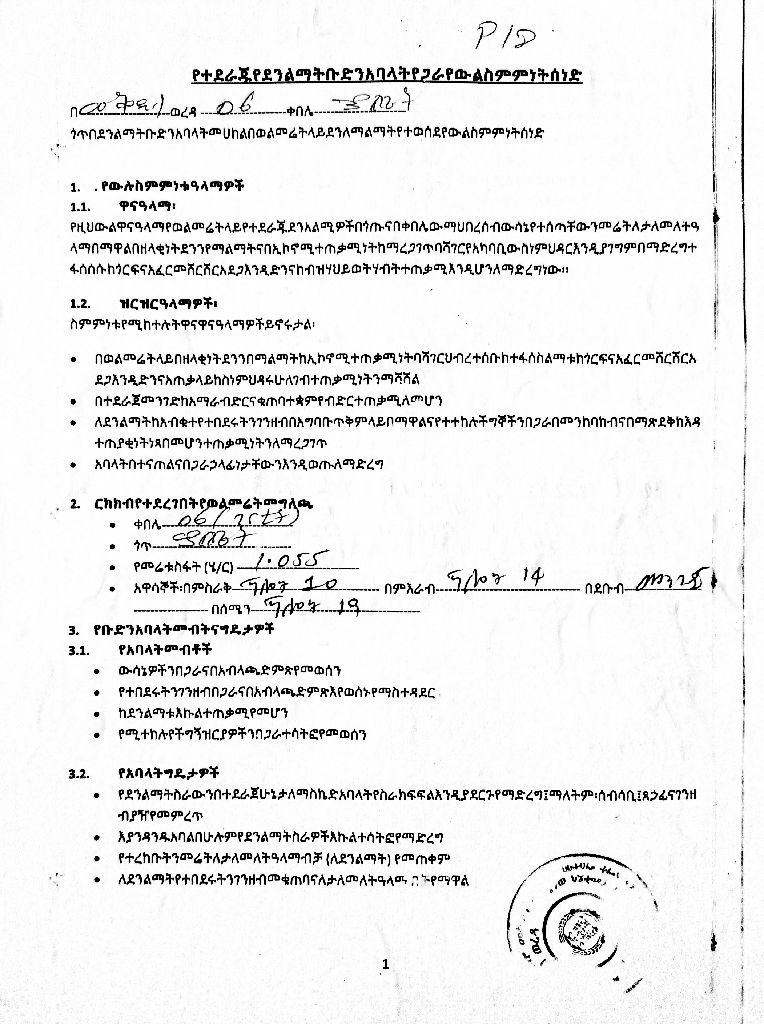 P/D
የተደራጁየደንልማትቡድንአባላትየጋራየውልስምምነትሰነድ
በ ወረዳ 06 ቀበሌ
ጎጥበደንልማትቡድንአባላትመሀከልበወልመሬትላይደንለማልማትየተወሰደየውልስምምነትሰነድ
1. .የውሉስምምነቱዓላማዎች
1.1. ዋናዓላማ፡
የዚህውልዋናዓላማየወልመሬትላይየተደራጁደንአልሚዎችበጎጡናበቀበሌውማህበረሰብውሳኔየተሰጣቸውንመሬትለታለመለትዓ
ላማበማዋልበዘላቂነትደንንየማልማትናበኢኮኖሚተጠቃሚነትከማረጋገጥባሻገርየአካባቢውስነምህዳርእንዲያገግምበማድረግተ
ፋሰሱከጎርፍናአፈርመሸርሸርአደጋእንዲድንናከብዝሃህይወትሃብትተጠቃሚእንዲሆንለማድረግነው።
1.2. ዝርዝርዓላማዎች፡
ስምምነቱየሚከተሉትዋናዋናዓላማዎችይኖሩታል፡
• በወልመሬትላይበዘላቂነትደንንበማልማትከኢኮኖሚተጠቃሚነትባሻገርህብረተሰቡከተፋሰስልማቱከጎርፍናአፈርመሸርሸርአ
ደጋእንዲድንናአጠቃላይከስነምህዳሩሁለገብተጠቃሚነትንማሻሻል
• በተደራጀመንገድከአማራብድርናቁጠባተቋምየብድርተጠቃሚለመሆን
• ለደንልማትከአብቁተየተበደሩትንገንዘብበአግባቡጥቅምላይበማዋልናየተተከሉችግኞችንበጋራበመንከባከብናበማጽደቅከእዳ
ተጠያቂነትነጻበመሆንተጠቃሚነትንለማረጋገጥ
• አባላትበተናጠልናበጋራኃላፊነታቸውንእንዲወጡለማድረግ
2. ርክክብየተደረገበትየወልመሬትመግለጫ
• ቀበሌ 06/
• ጎጥ
• የመሬቱስፋት (ሄ/ር) 1.055
• አዋሳኞች፡በምስራቅ 10 በምእራብ 14 በደቡብ መንገድ
በሰሜን 19
3. የቡድንአባላትመብትናግዴታዎች
3.1. የአባላትመብቶች
• ውሳኔዎችንበጋራናበአብላጫድምጽየመወሰን
• የተበደሩትንገንዘብበጋራናበአብላጫድምጽእየወሰኑየማስተዳደር
• ከደንልማቱእኩልተጠቃሚየመሆን
• የሚተከሉየችግኝዝርያዎችንበጋራተሳትፎየመወሰን
3.2. የአባላትግዴታዎች
• የደንልማትስራውንበተደራጀሁኔታለማስኬድአባላትየስራክፍፍልእንዲያደርጉየማድረግ፤ማለትም፡ሰብሳቢ፤ጸኃፊናገንዘ
ብያዥየመምረጥ
• እያንዳንዱአባልበሁሉምየደንልማትስራዎችእኩልተሳትፎየማድረግ
• የተረከቡትንመሬትለታለመለትዓላማብቻ (ለደንልማት) የመጠቀም
• ለደንልማትየተበደሩትንገንዘብመቁጠባናለታለመለትዓላማ
1